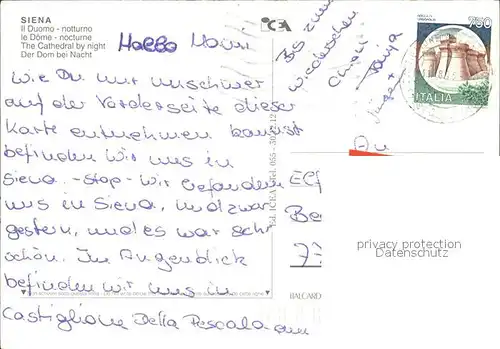 SIENA
Il Duomo - notturno
le Dôme - nocturne
The Cathedral by night
Der Dom bei Nacht
ICEA
Hallo
Wie Du nur unschwer
auf der Vorderseite dieser
Karte entnehmen kannst
befinden wir uns in
Siena. -Stop- Wir befanden
uns in Siena, und zwar
gestern, und es war sehr
schön. Im Augenblick
befinden wir uns in
Castiglione Della Pescaia am
Bis zum
wiederschen
Tanja
750
ITALIA
An
privacy protection
Datenschutz